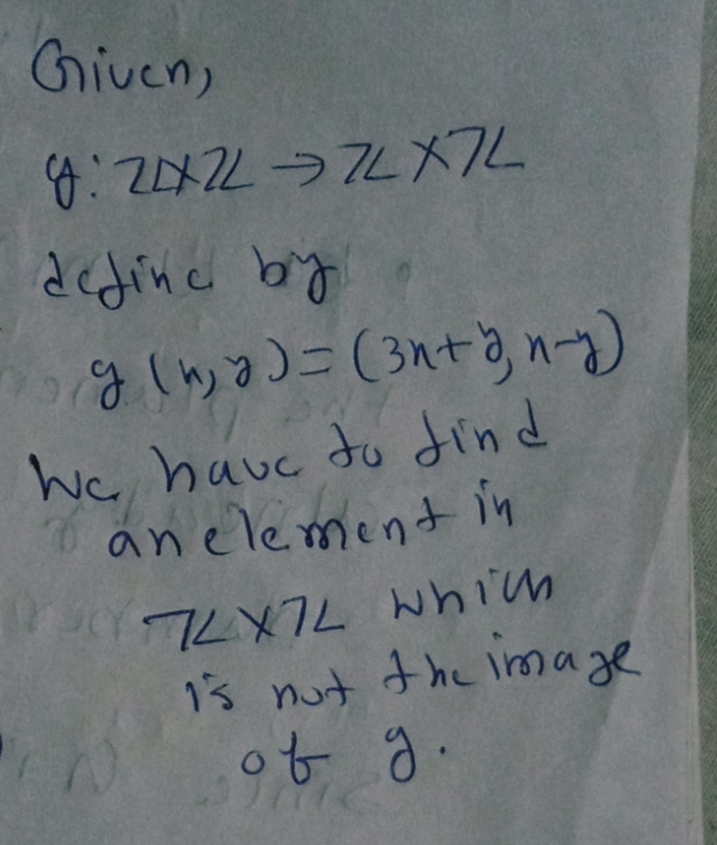 Given,
g: ℤ×ℤ → ℤ×ℤ
define by
g(x,y) = (3x+y, x-y)
We have to find
an element in
ℤ×ℤ which
is not the image
of g.